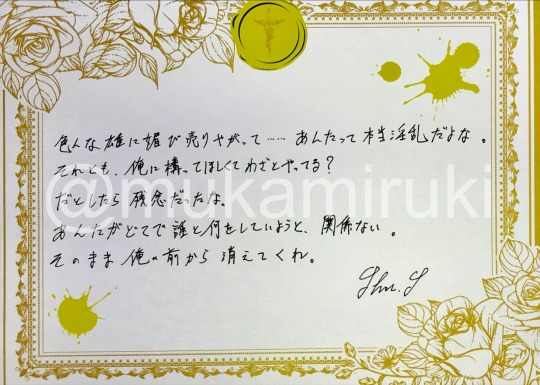 色んな雄に媚び売りやがって……あんたって本当淫乱だよな。
それとも、俺に構ってほしくてわざとやってる？
だとしたら残念だったな。
あんたがどこで誰と何をしていようと、関係ない。
そのまま俺の前から消えてくれ。
Shu. S
@mukamiruki